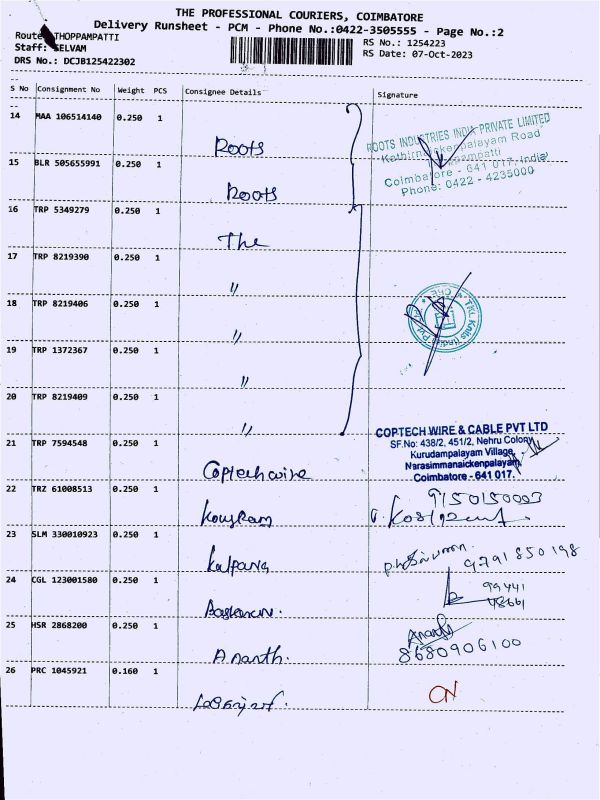 THE PROFESSIONAL COURIERS, COIMBATORE
Delivery Runsheet - PCM - Phone No.:0422-3505555 - Page No.:2
Route THOPPAMPATTI
Staff: SELVAM
DRS No.: DCJB125422302
RS No.: 1254223
RS Date: 07-Oct-2023
S No Consignment No Weight PCS Consignee Details Signature
14 MAA 106514140 0.250 1 Roots
ROOTS INDUSTRIES INDIA PRIVATE LIMITED
Road
Coimbatore - 641 017. India
Phone: 0422 - 4235000
15 BLR 505655991 0.250 1 Roots
16 TRP 5349279 0.250 1 The
17 TRP 8219390 0.250 1 "
18 TRP 8219406 0.250 1 "
19 TRP 1372367 0.250 1 "
20 TRP 8219409 0.250 1 "
COPTECH WIRE & CABLE PVT LTD
SF.No: 438/2, 451/2, Nehru Colony,
Kurudampalayam Village,
Narasimmanaickenpalayam,
Coimbatore - 641 017.
21 TRP 7594548 0.250 1 Coptech wire
22 TRZ 61008513 0.250 1
9150150003
23 SLM 330010923 0.250 1 Kalpana
9791850198
24 CGL 123001580 0.250 1
99441
25 HSR 2868200 0.250 1 Ananth.
Ananth
8680906100
26 PRC 1045921 0.160 1